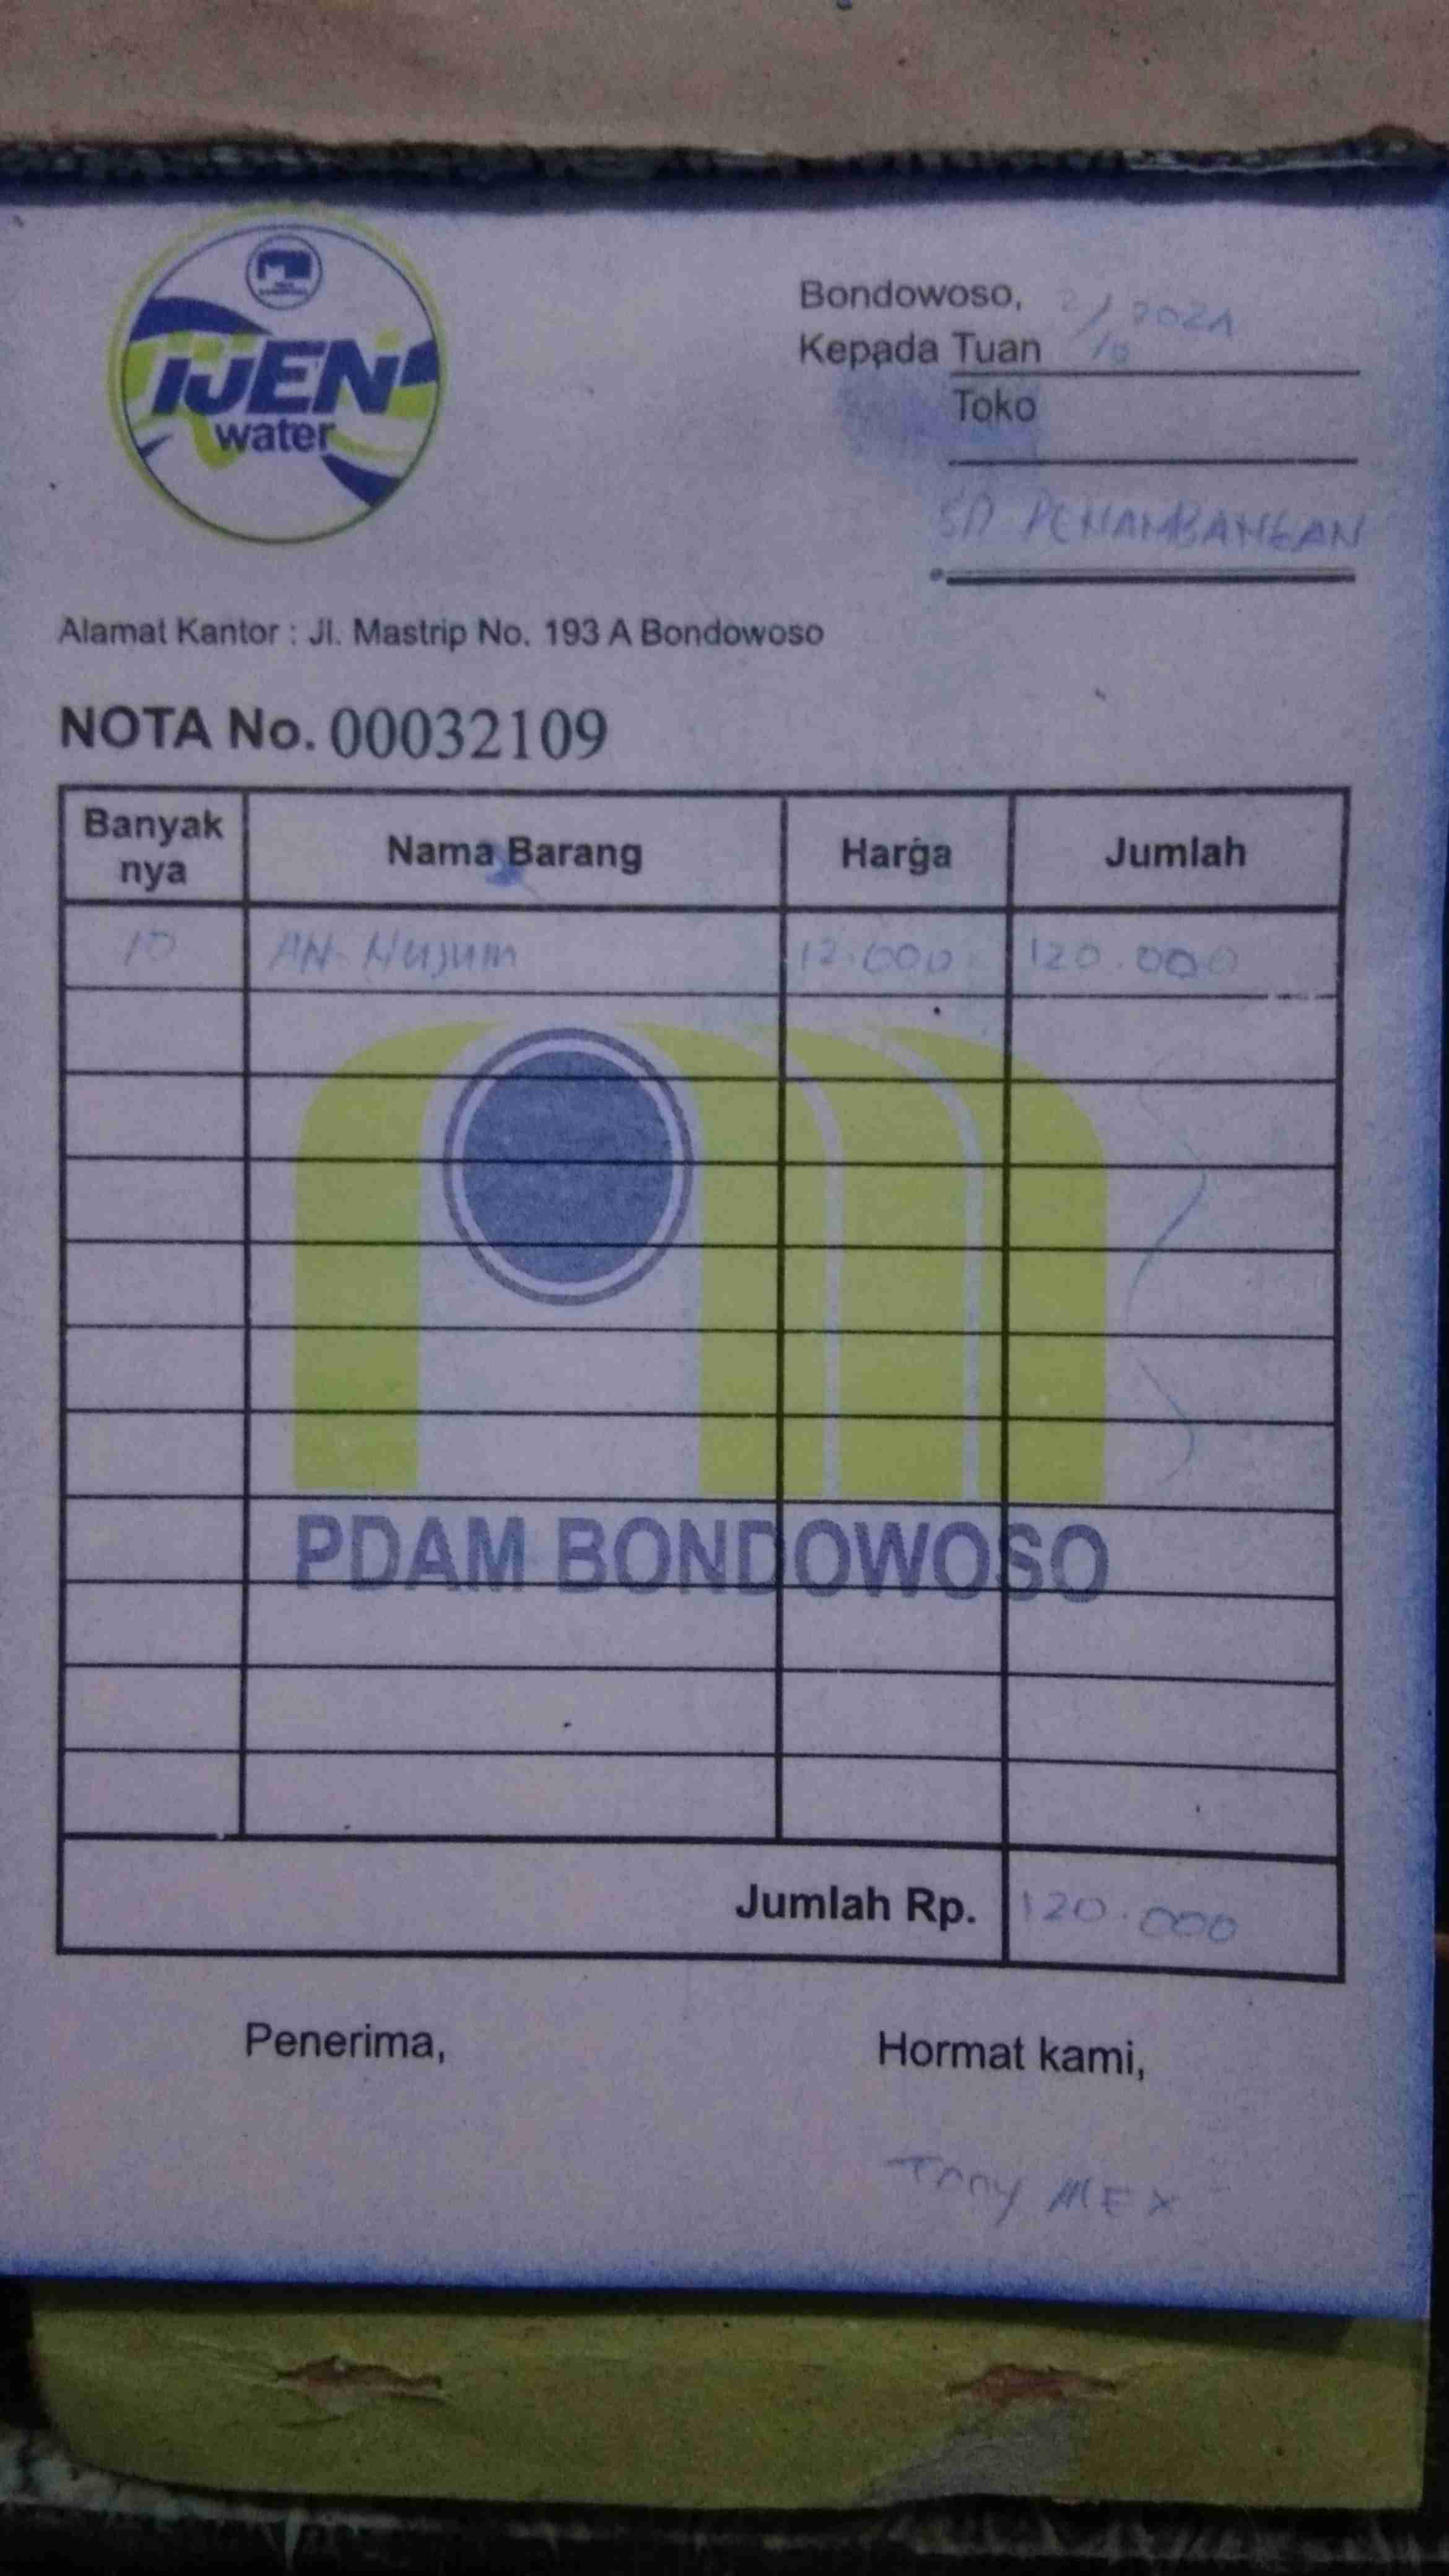 IJEN
water
Bondowoso, 2/10 2021
Kepada Tuan
Toko
SD PENAMBANGAN
Alamat Kantor : Jl. Mastrip No. 193 A Bondowoso
NOTA No. 00032109
Banyak nya Nama Barang Harga Jumlah
10 AN-Nujum 12.000 120.000
PDAM BONDOWOSO
Jumlah Rp. 120.000
Penerima, Hormat kami,
Tony MEX